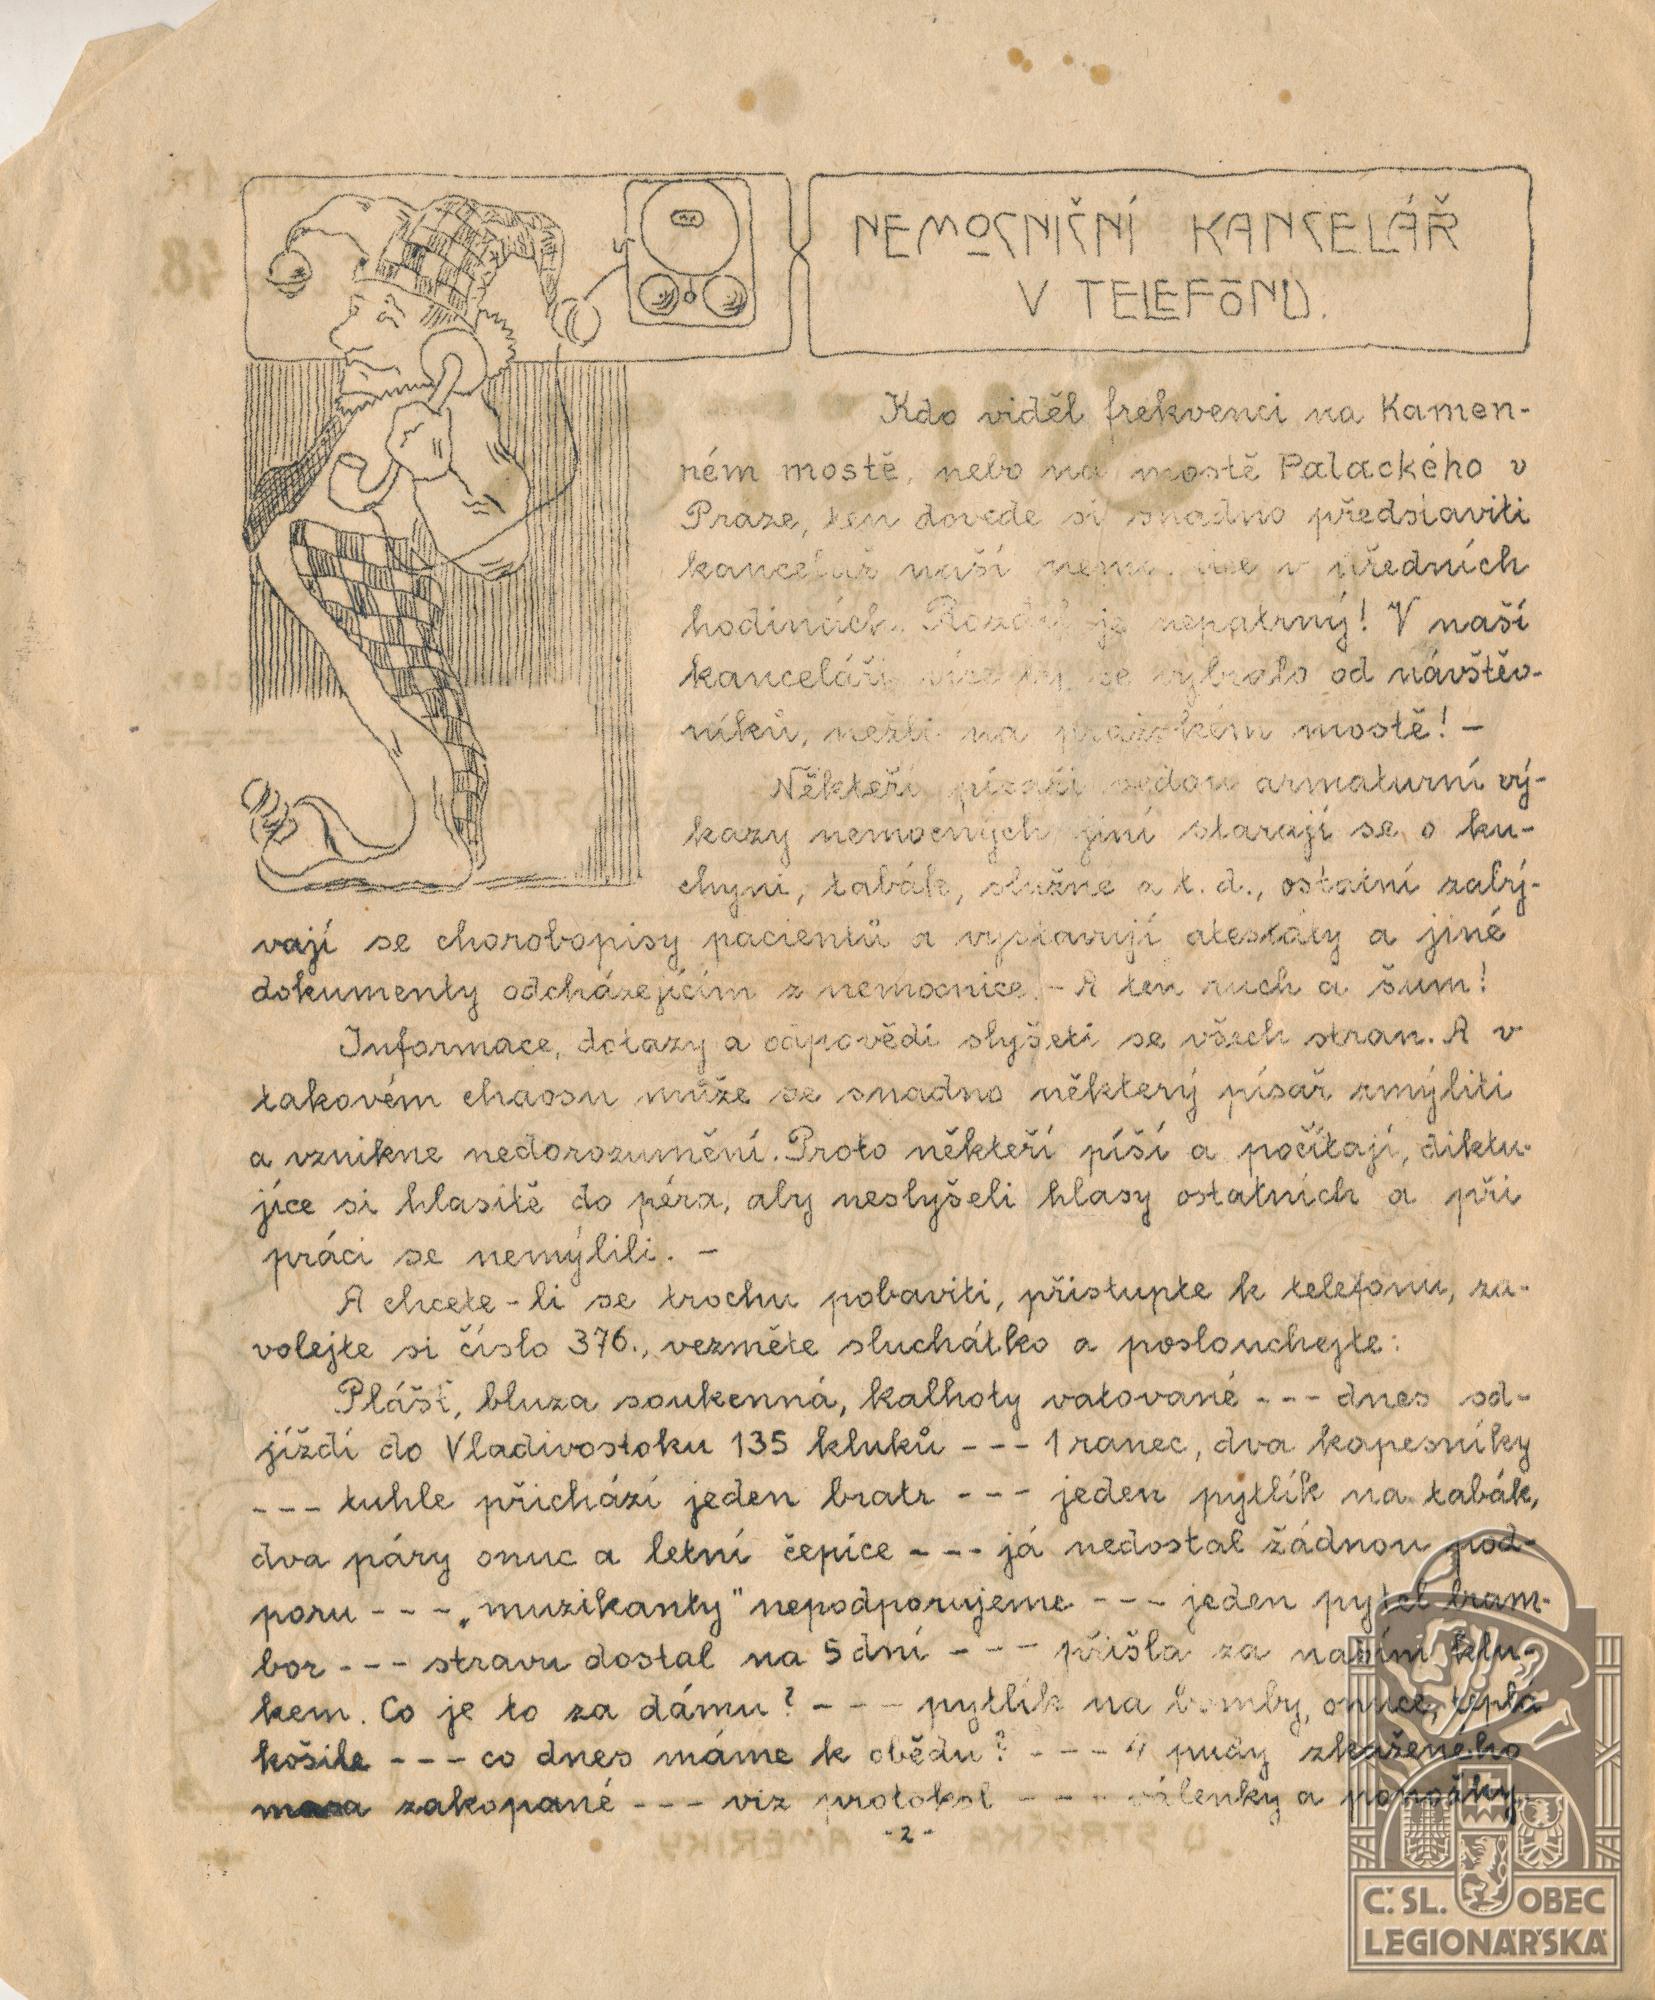 NEMOCNIČNÍ KANCELÁŘ
V TELEFONU.
Kdo viděl frekvenci na Kamen-
ném mostě, nebo na mostě Palackého v
Praze, ten dovede si snadno představiti
kancelář naší v předních
hodinách. Rozdíl je nepatrný! V naší
kanceláři se vybralo od návštěv-
níků, nežli na pražském mostě! -
Někteří písaři vedou armaturní vý-
kazy nemocných jiní starají se o ku-
chyni, tabák, služné a t. d., ostatní zabý-
vají se chorobopisy pacientů a vystavují atestáty a jiné
dokumenty odcházejícím z nemocnice. - A ten ruch a šum!
Informace, dotazy a odpovědi slyšeti se všech stran. A v
takovém chaosu může se snadno některý písař zmýliti
a vznikne nedorozumění. Proto někteří píší a počítají, diktu-
jíce si hlasitě do péra, aby neslyšeli hlasy ostatních a při
práci se nemýlili. -
A chcete-li se trochu pobaviti, přistupte k telefonu, za-
volejte si číslo 376., vezměte sluchátko a poslouchejte:
Plášť, bluza soukenná, kalhoty vatované --- dnes od-
jíždí do Vladivostoku 135 kluků --- 1 ranec, dva kapesníky
--- tuhle přichází jeden bratr --- jeden pytlík na tabák,
dva páry onuc a letní čepice --- já nedostal žádnou pod-
poru --- „muzikanty" nepodporujeme --- jeden pytel bram-
bor --- stravu dostal na 5 dní --- přišla za naším klu-
kem. Co je to za dámu? --- pytlík na bomby, onuce, teplá
košile --- co dnes máme k obědu? --- 4 pudy zkaženého
masa zakopané --- viz protokol --- válenky a ponožky.
- 2 -
Č. SL. OBEC
LEGIONÁŘSKÁ